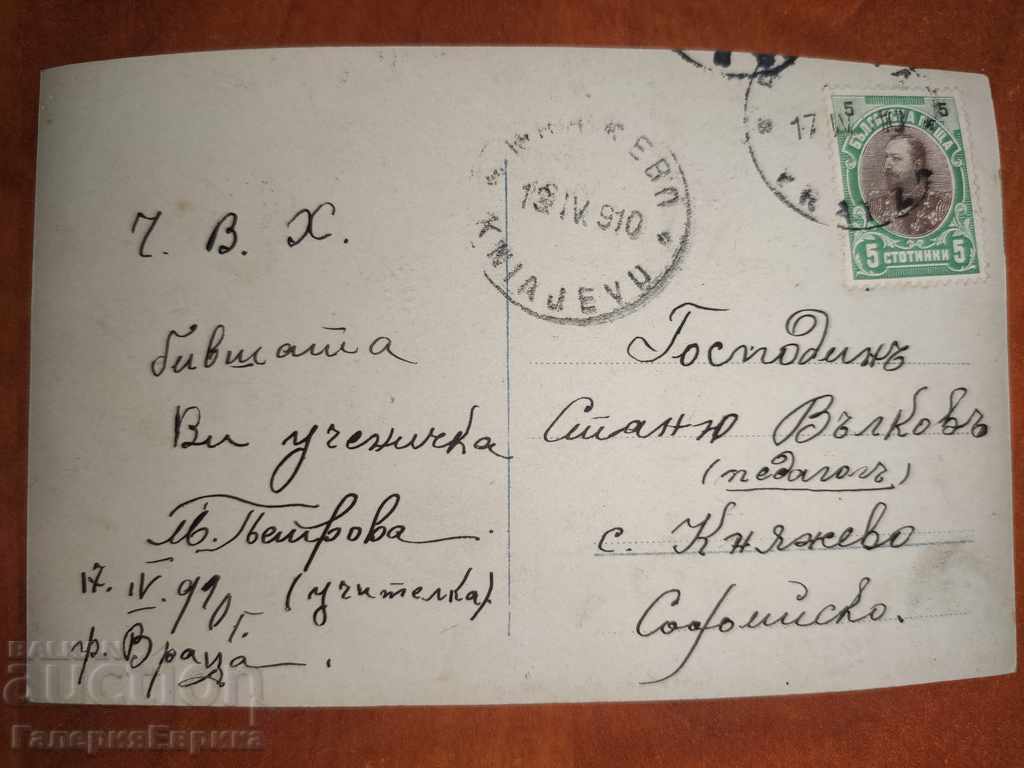 Ч. В. Х.
бившата
Ви ученичка
М. Петрова.
17. IV. 910 г. (учителка).
гр. Враца.
КНЯЖЕВО
KNIAJEVO
IV. 910
17
5 5
БЪЛГАРСКА ПОЩА
5 СТОТИНКИ 5
Господинъ
Станю Вълковъ
(педагогъ)
с. Княжево
Софийско.
BALKAN
auction
ГалерияЕврика